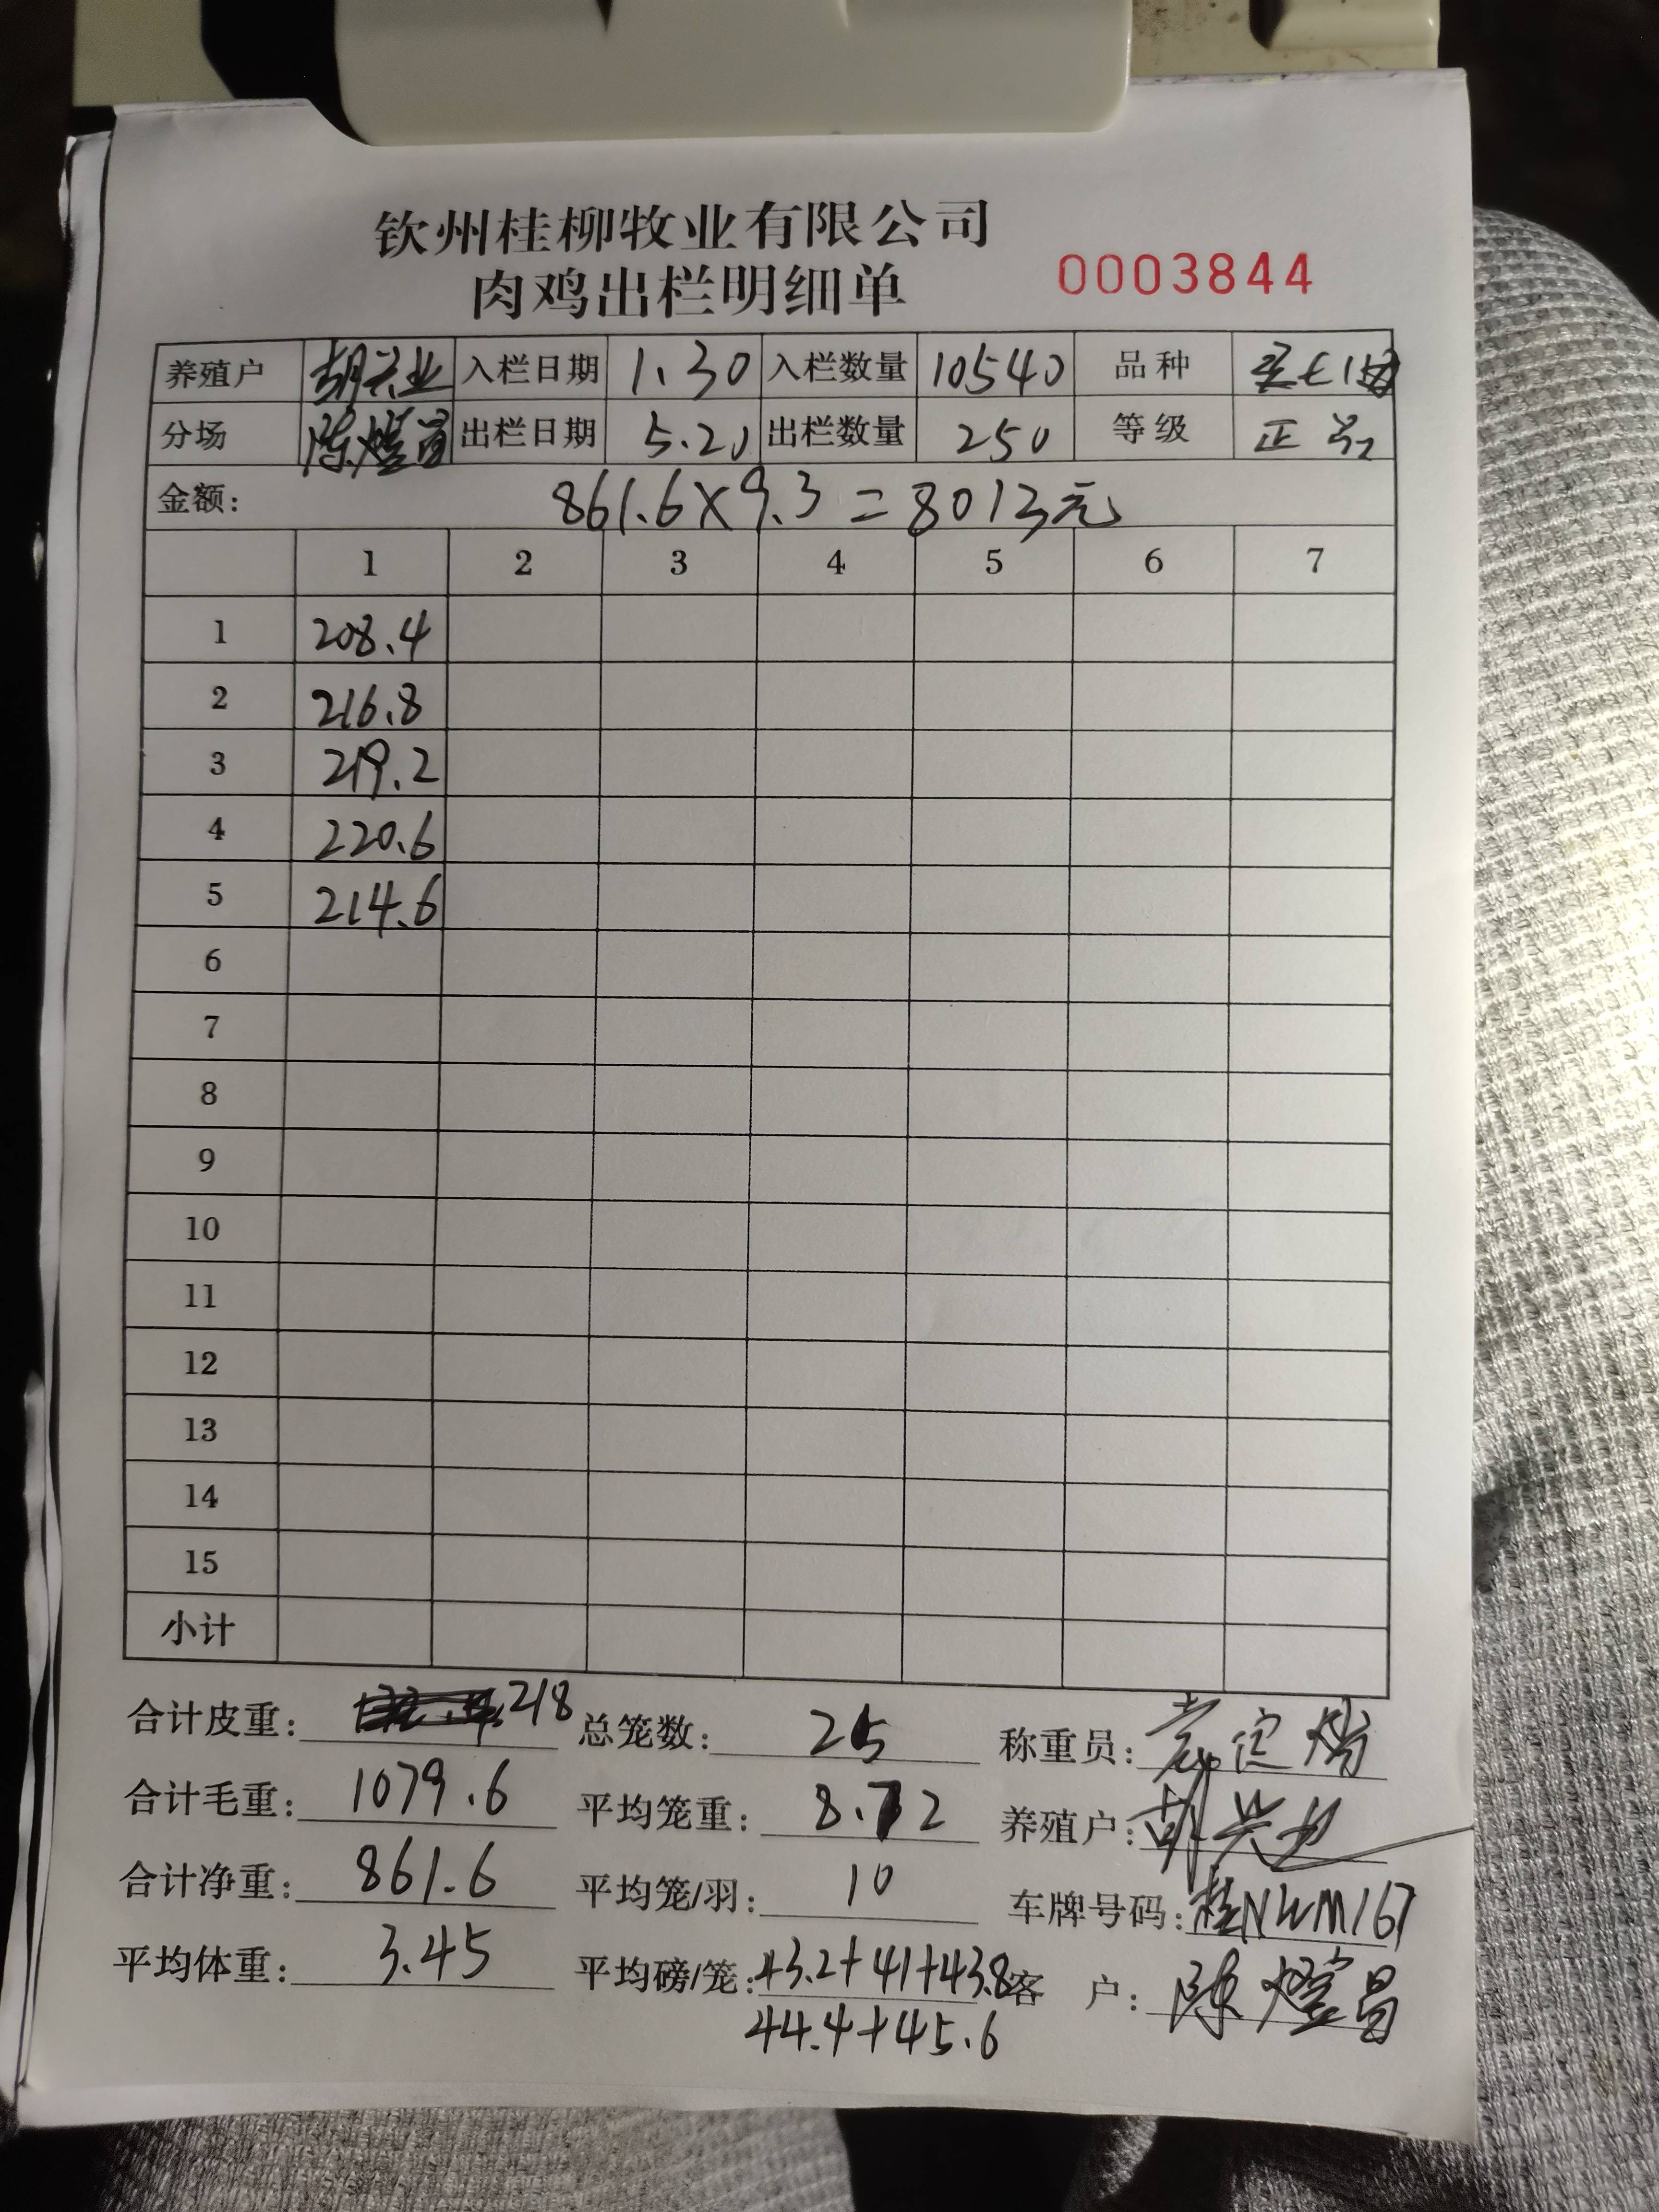 钦州桂柳牧业有限公司
肉鸡出栏明细单 0003844
养殖户 胡兴业 入栏日期 1.30 入栏数量 10540 品种
分场 陈燈昌 出栏日期 5.20 出栏数量 250 等级 正品
金额: 861.6×9.3=8013元
1 2 3 4 5 6 7
1 208.4
2 216.8
3 219.2
4 220.6
5 214.6
6
7
8
9
10
11
12
13
14
15
小计
合计皮重: 218 总笼数: 25 称重员:
合计毛重: 1079.6 平均笼重: 8.72 养殖户: 胡兴业
合计净重: 861.6 平均笼/羽: 10 车牌号码: 桂NWM167
平均体重: 3.45 平均磅/笼: 43.2+41+43.8 客 户: 陈燈昌
44.4+45.6